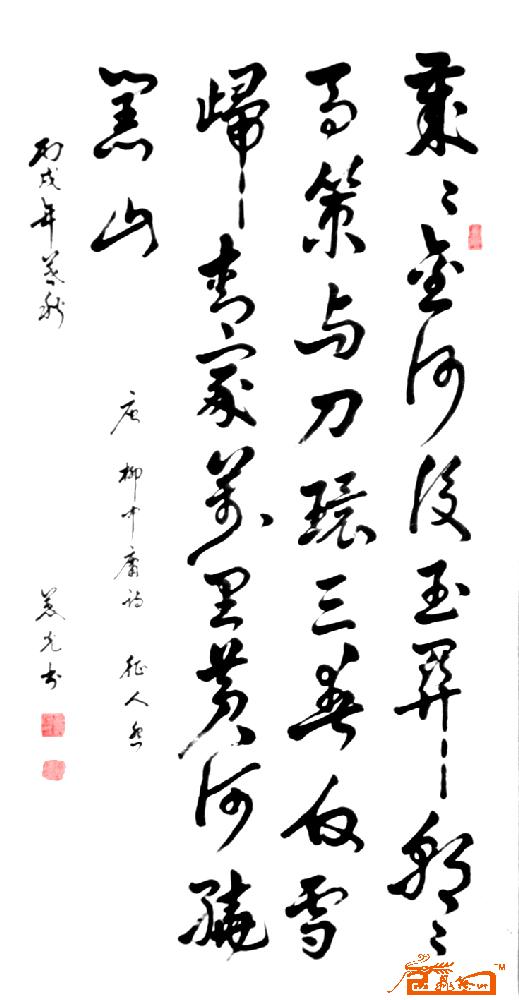 岁々金河复玉关朝々
马策与刀环三春白雪
归青冢万里黄河绕
黑山
唐 柳中庸诗 征人怨
丙戌年